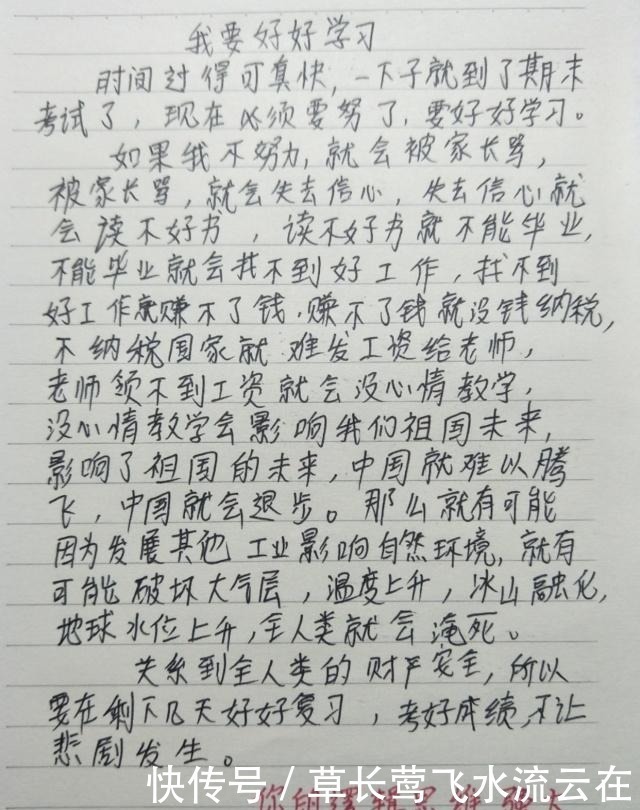 我要好好学习
时间过得可真快，一下子就到了期末
考试了，现在必须要努了，要好好学习。
如果我不努力，就会被家长骂，
被家长骂，就会失去信心，失去信心就
会读不好书，读不好书就不能毕业，
不能毕业就会找不到好工作，找不到
好工作就赚不了钱．赚不了钱就没钱纳税，
不纳税国家就难发工资给老师，
老师领不到工资就会没心情教学，
没心情教学会影响我们祖国未来，
影响了祖国的未来，中国就难以腾
飞，中国就会退步。那么就有可能
因为发展其他工业影响自然环境，就有
可能破坏大气层，温度上升，冰山融化，
地球水位上升，全人类就会淹死。
关系到全人类的财产安全，所以
要在剩下几天好好复习，考好成绩，不让
悲剧发生。
快传号／草长莺飞水流云在
你的逻辑思维强大